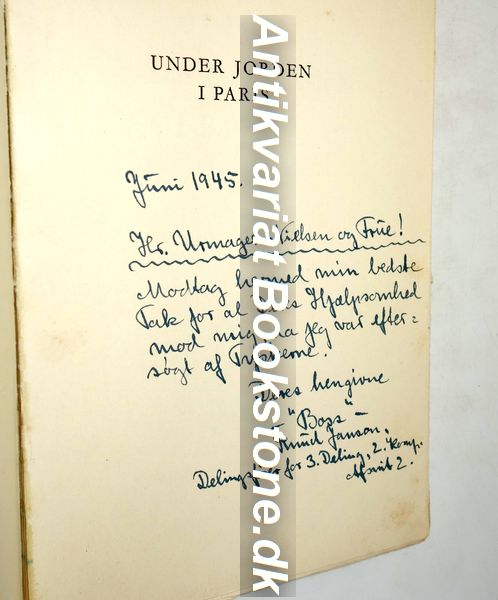 UNDER JORDEN
I PARIS
Juni 1945.
Hr. Urmager Nielsen og Frue!
Modtag herved min bedste
Tak for al Hjælpsomhed
mod mig da jeg var efter=
søgt af Tyskerne.
Deres hengivne
"Boss" -
Knud Janson,
for 3. Deling, 2. Komp.
Afsnit 2.
Antikvariat Bookstone.dk